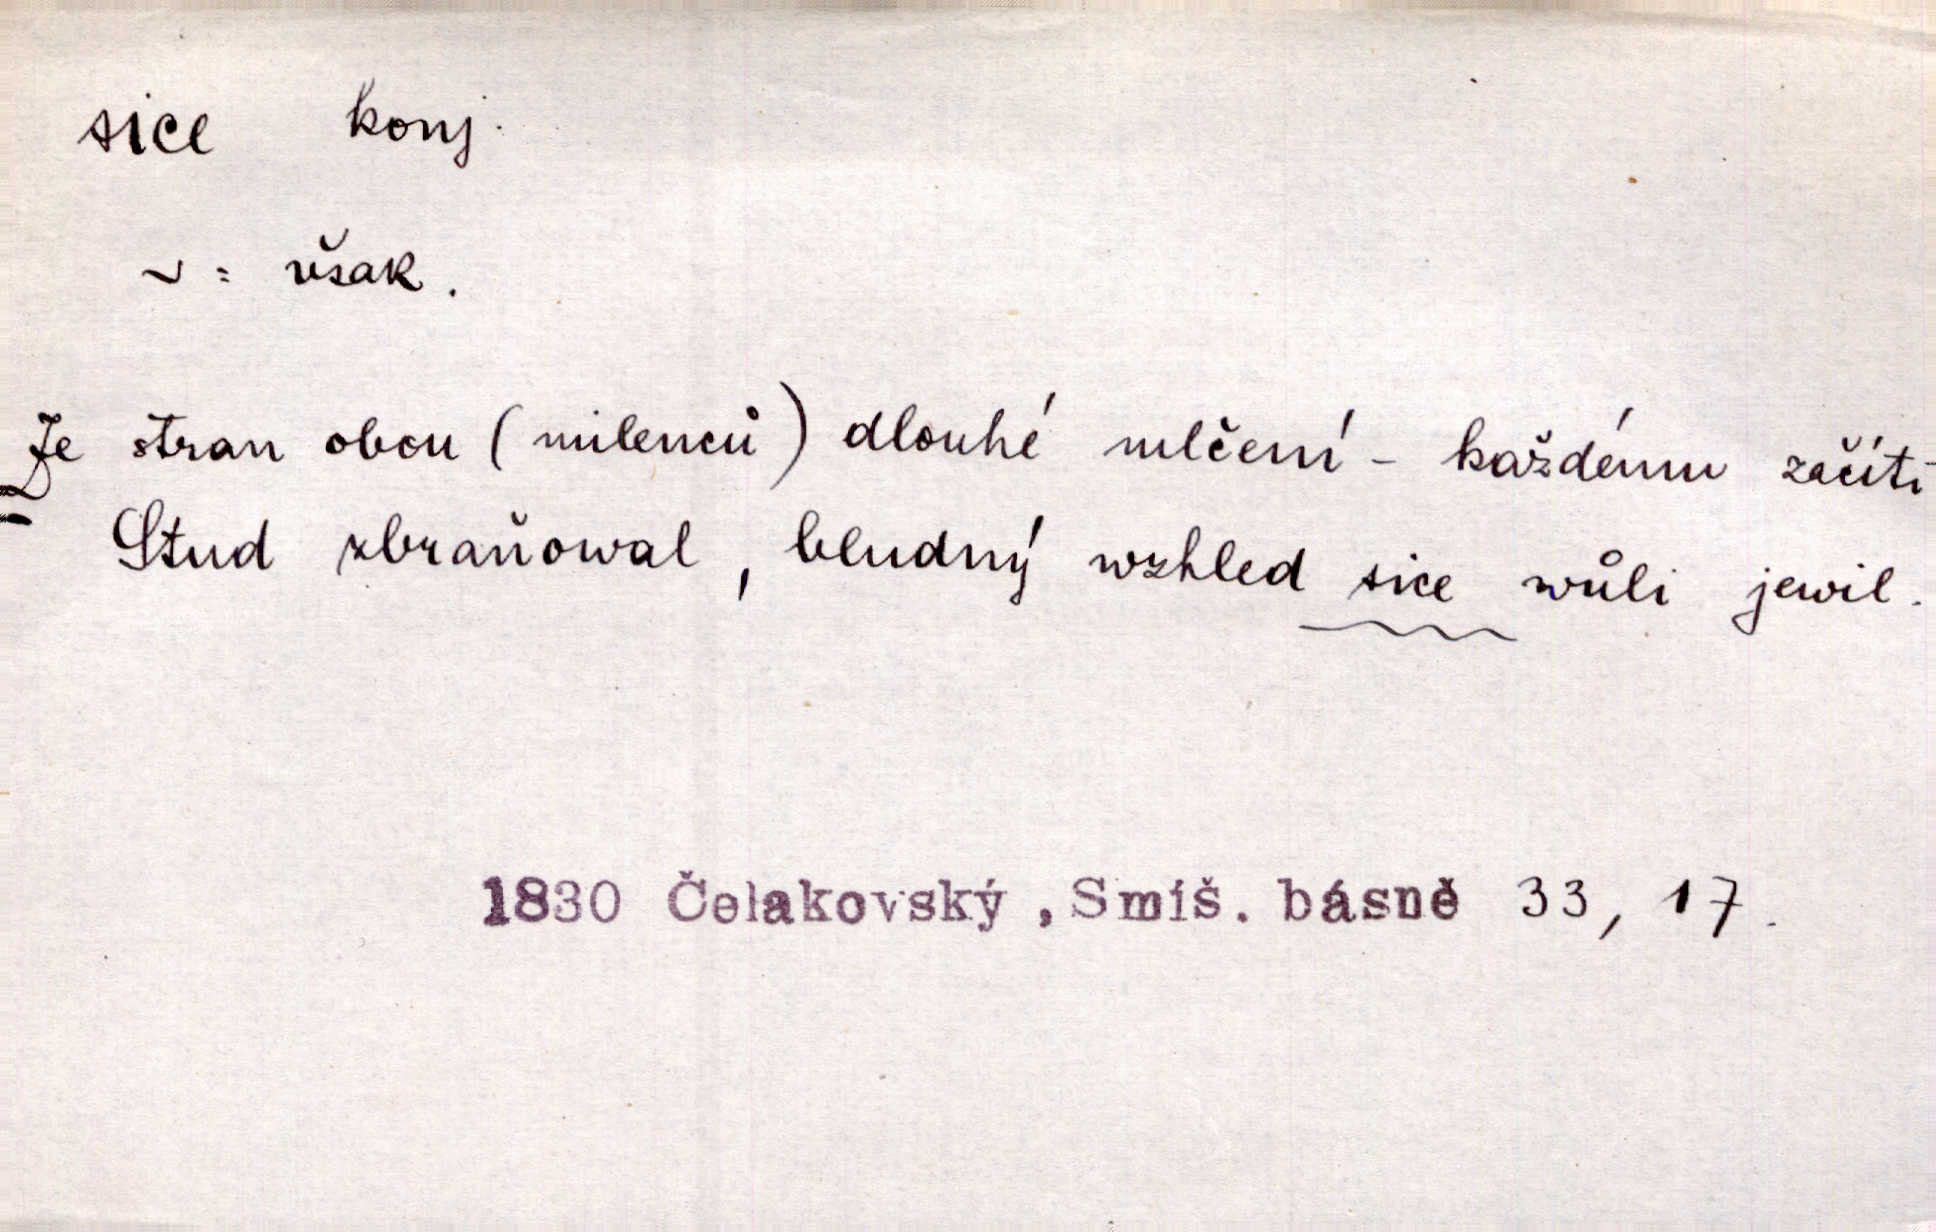 sice konj.
~ = však.
Ze stran obou (milenců) dlouhé mlčení - každému začíti
Stud zbraňowal, bludný wzhled sice wůli jewil.
1830 Čelakovský, Smíš. básně 33, 17.